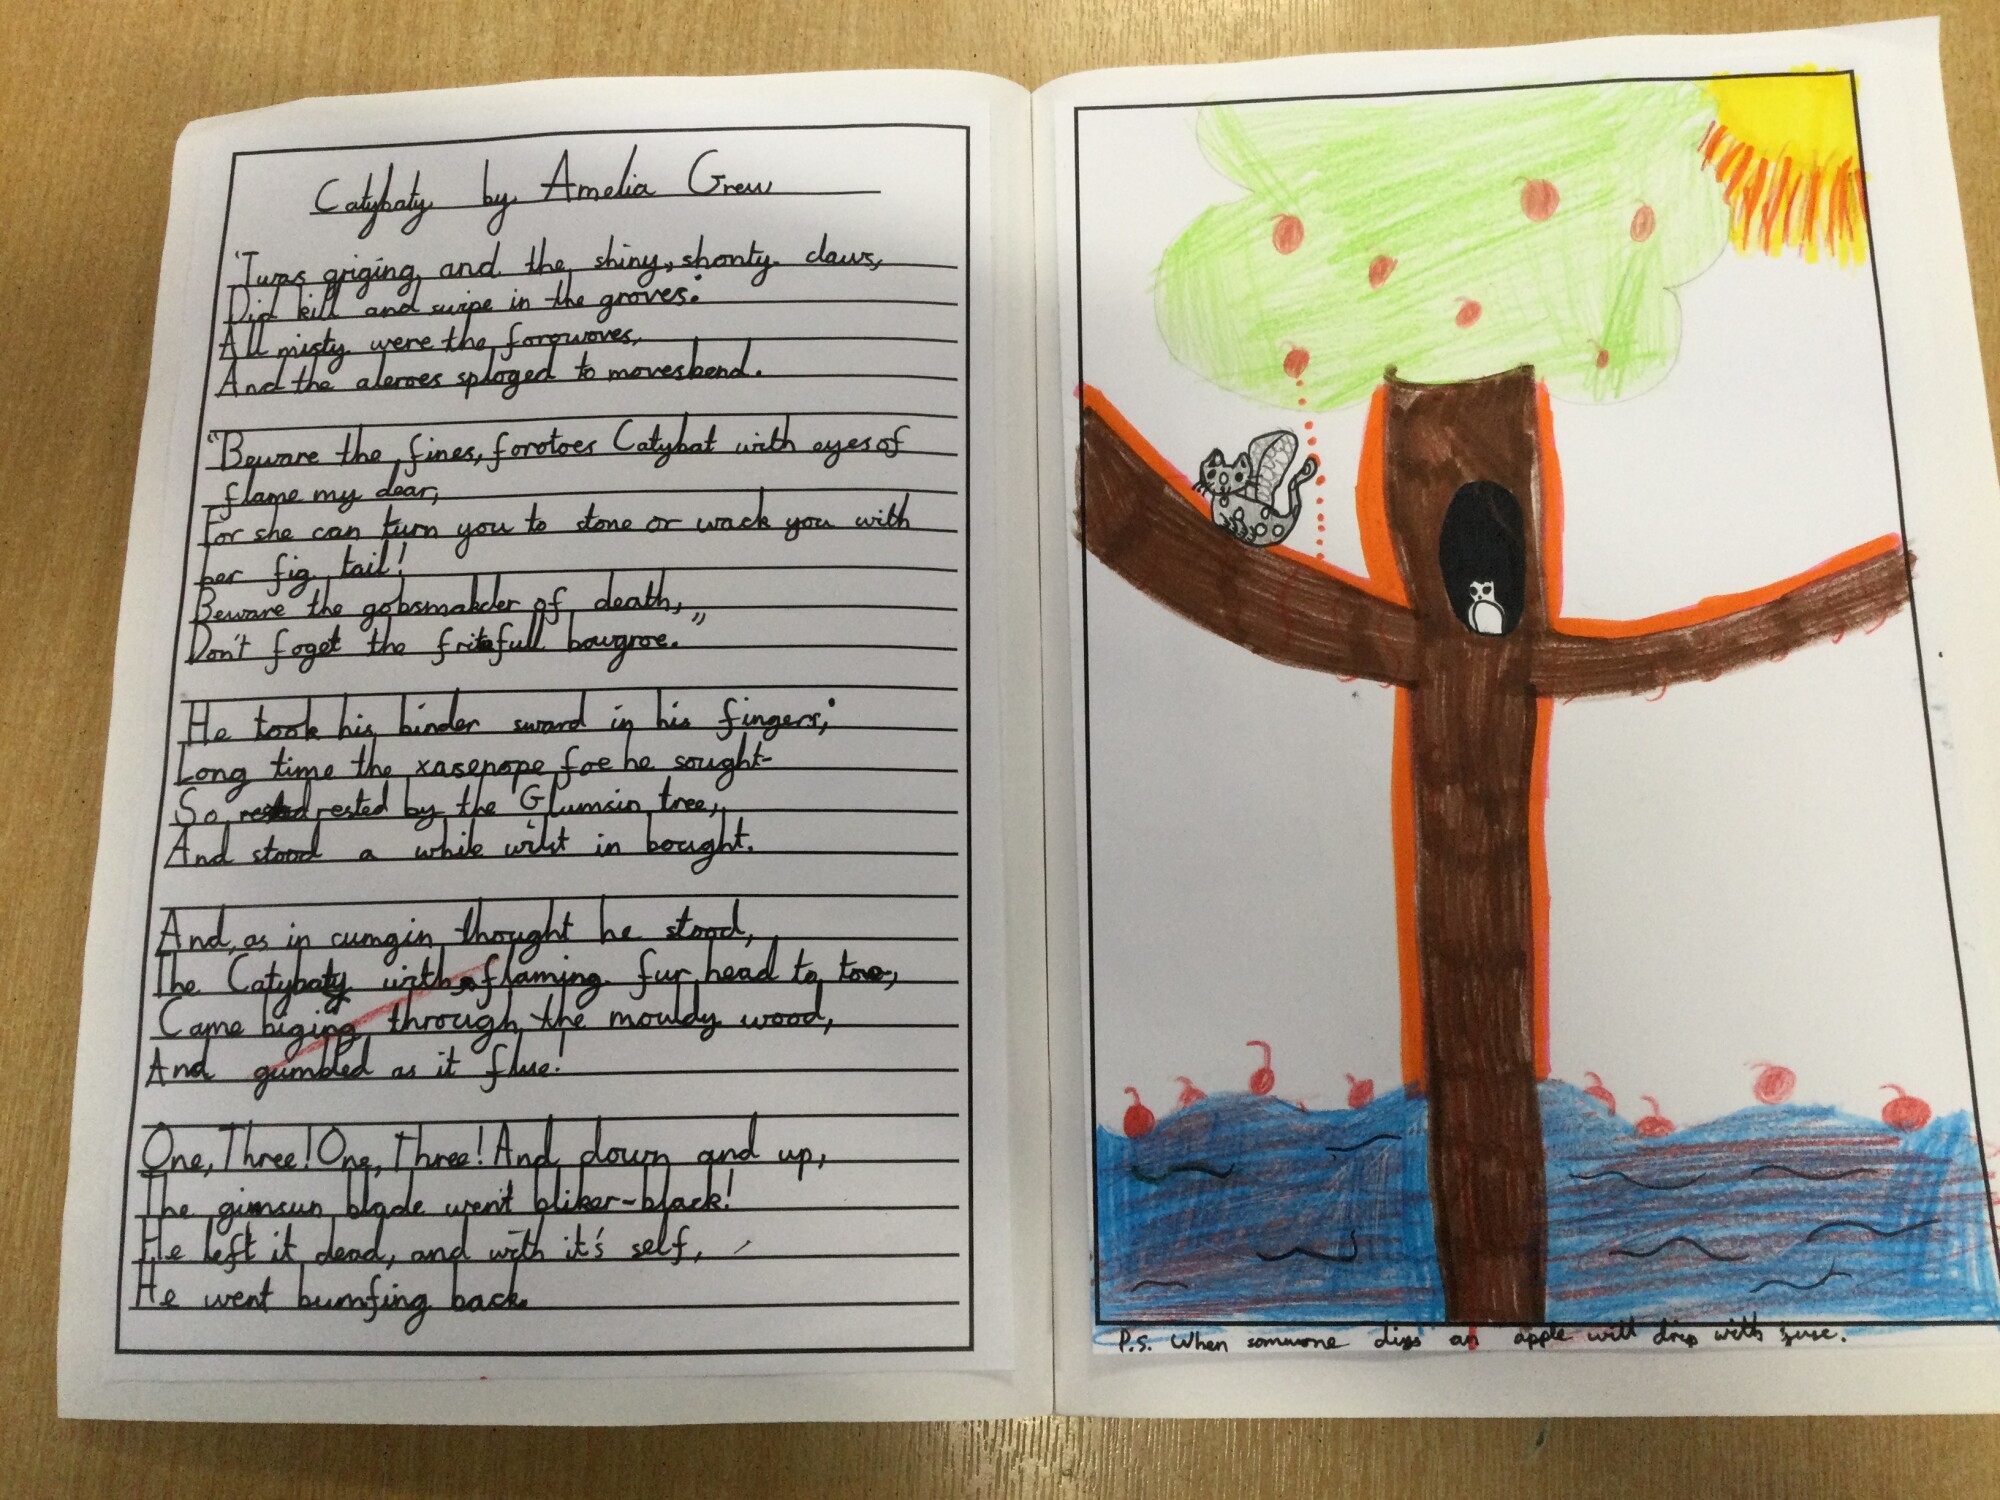 Catybaty by Amelia Grew
'Twas griging, and the shiny, shonty claws,
Did kill and swipe in the groves:
All misty were the forowoves,
And the aleroes sploged to movesbend.
"Beware the fines, forotoes Catybat with eyes of
flame my dear,
For she can turn you to stone or wack you with
her fig tail!
Beware the gobsmakder of death,
Don't foget the fritefull bowgroe."
He took his binder sward in his fingers;
Long time the xasepope foe he sought-
So rested by the Glumsin tree,
And stood a while wilst in bought.
And, as in cumgin thought he stood,
The Catybaty with flaming fur head to toe,
Came biging through the mouldy wood,
And gumbled as it flue!
One, Three! One, Three! And down and up,
The gimsun blade went bliker-black!
He left it dead, and with it's self,
He went bumfing back.
P.S. When someone digs an apple will drip with